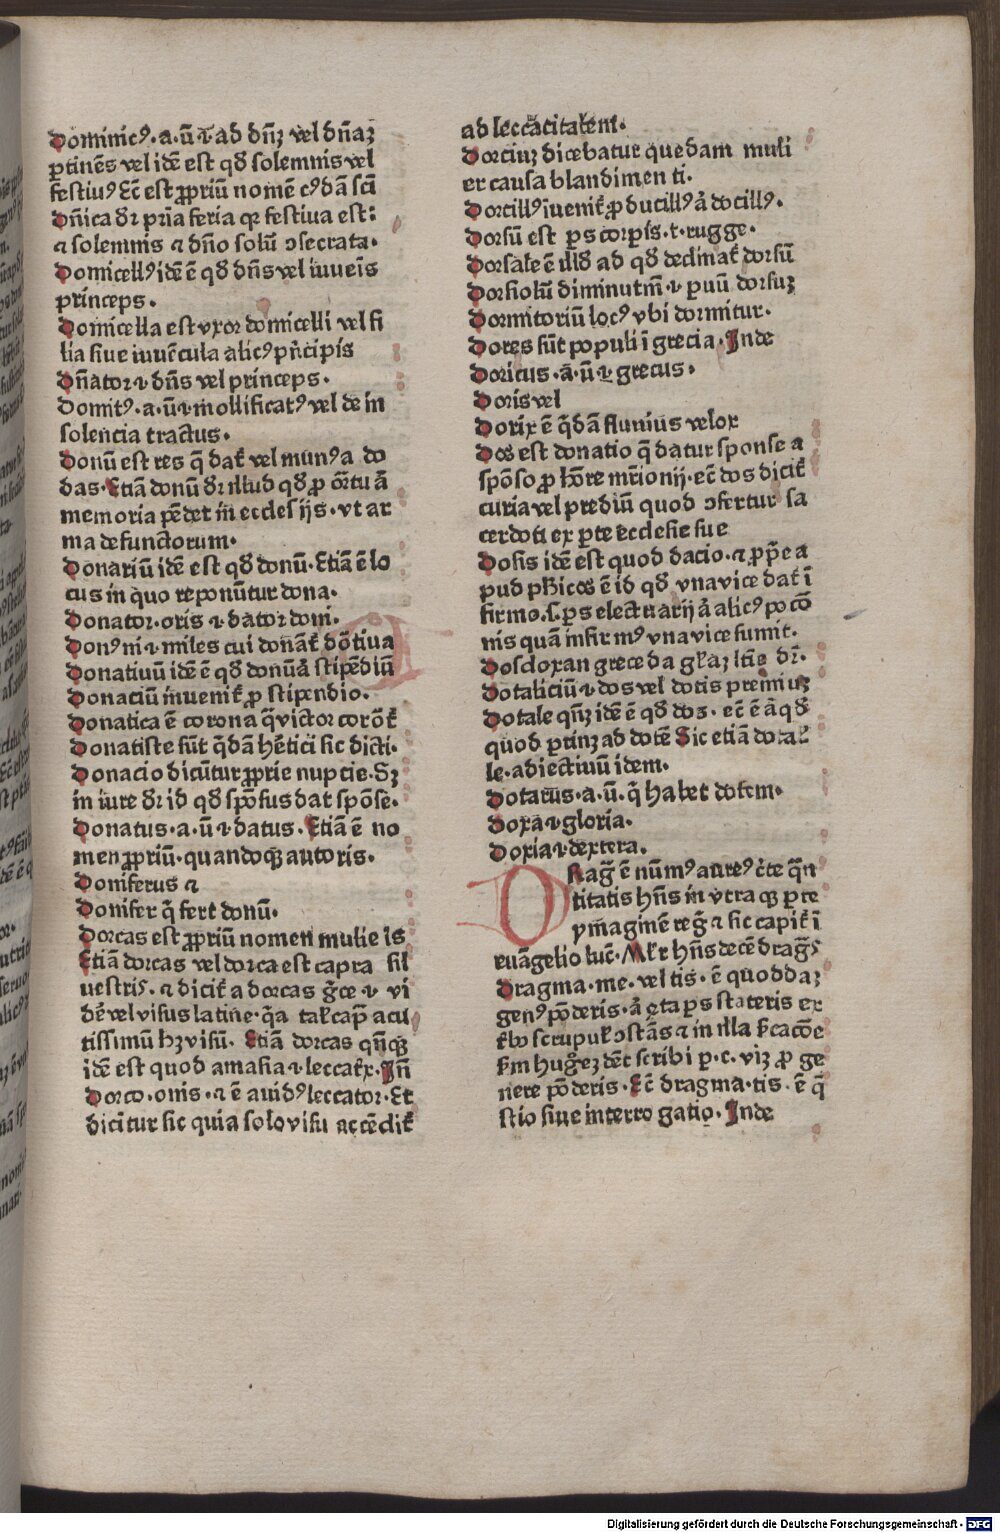 Dominicꝰ. a. ū ⁊ ad dn̄ꝫ vel dn̄aꝫ
ꝑtinēs vel idē est qd̄ solemnis vel
festiuꝰ Ec̄ est ꝓpriū nomē cꝰdā sc̄i
Dn̄ica dr̄ pr̄ia feria qꝛ festiua est:
⁊ solemnis ⁊ dn̄o solū ↄsecrata.
Domicellꝰ idē ē qd̄ dn̄s vel iuuēis
princeps.
Domicella est vxor domicelli vel fi
lia siue iuuēcula alicꝰ pn̄cipis
Dn̄ator ⁊ dn̄s vel princeps.
Domitꝰ. a. ū ⁊ mollificatꝰ vel de in
solencia tractus.
Donū est res q̄ dat̄ vel munꝰ a do
das. Etiā donū dr̄ illud qd̄ ꝓ ōrtu ā
memoria pēdet in ecclesijs. vt ar
ma defunctorum.
Donariū idē est qd̄ donū. Etiā ē lo
cus in quo reponūtur dona.
Donator. oris ⁊ dator doni.
Donꝰ ni ⁊ miles cui donāt̄ dōtiua
Donatiuū idē ē qd̄ donū ā stipēdiū
Donaciū inuenit̄ ꝓ stipendio.
Donatica ē corona q̄ victor corōt̄
Donatiste sūt q̄dā hētici sic dicti.
Donacio dicūtur ꝓprie nuptie. Sꝫ
in iure dr̄ id qd̄ spōsus dat spōse.
Donatus. a. ū ⁊ datus. Etiā ē no
men ꝓpriū. quandoqꝫ autoris.
Doniferus ⁊
Donifer q̄ fert donū.
Dorcas est ꝓpriū nomen mulieis
Etiā dorcas vel dorca est capra sil
uestris. ⁊ dicit̄ a dorcas ḡce ⁊ vi
dē vel visus latine. q̄a tał cap̄ acu
tissimū hꝫ visū. Etiā dorcas qn̄qꝫ
idē est quod amasia ⁊ leccat̄x. In̄
Dorco. onis. ⁊ ē auidꝰ leccator. Et
dicitur sic quia solo visu accēdit̄
ad leccacitatem.
Dorciuꝫ dicebatur quedam muli
er causa blandimenti.
Dorcillꝰ iuenit̄ ꝓ ducillꝰ ā docillꝰ.
Dorsū est ꝑs corꝑis. t. rugge.
Dorsale ē illd̄ ad qd̄ declinat̄ dorsū
Dorsiolū diminutm̄ ⁊ ꝑuū dorsuꝫ
Dormitoriū locꝰ vbi dormitur.
Dores sūt populi ī grecia. Inde
Doricus. a. ū ⁊ grecus.
Doris vel
Dorix ē q̄dā fluuius velox
Dos est donatio q̄ datur sponse a
spōso ꝓ hōre mr̄ionij. ec̄ dos dicit̄
curia vel prediū quod ↄfertur sa
cerdoti ex ꝑte ecclesie sue
Dosis idē est quod dacio. ⁊ ꝓp̄e a
pud phicos ē id qd̄ vna vice dat̄ ī
firmo. s. ꝑs electuarij ā alicꝰ pocō
nis quam infirmꝰ vna vice sumit.
Dosdoxan grece da gl̄aꝫ ltīe dr̄.
Dotaliciū ⁊ dos vel dotis premiuꝫ
Dotale qn̄ꝫ idē ē qd̄ dos. ec̄ ē ā qd̄
quod ꝑtinꝫ ad dotē Sic etiā dotał
le. adiectiuū idem.
Dotatus. a. ū. q̄ habet dotem.
Doxa ⁊ gloria.
Doxia ⁊ dextera.
Draḡ ē nūmꝰ aureꝰ c̄te q̄n
titatis hn̄s in vtraqꝫ ꝑte
ymaginē reḡ ⁊ sic capit̄ ī
euāgelio luc̄. Młr hn̄s decē draḡs
Dragma. me. vel tis. ē quoddaꝫ
genꝰ pōderis. ā q̄ta ꝑs stateris ex
scrupuł ↄstās ⁊ in illa
huḡeꝫ dēt scribi ꝑ. c. viꝫ ꝓ ge
nere pōderis. Ec̄ dragma. tis. ē q̄
stio siue interrogatio. Inde
Digitalisierung gefördert durch die Deutsche Forschungsgemeinschaft - DFG